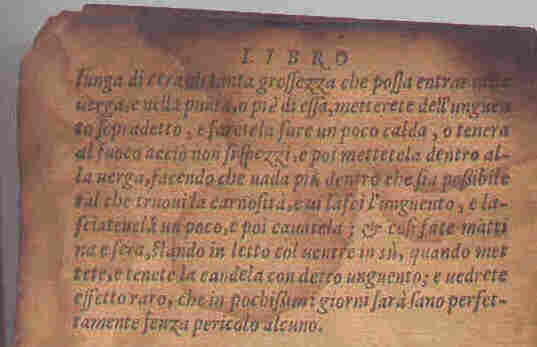 LIBRO
lunga di cera di tanta grossezza che possa entrar nella
uerga, e nella punta, o piè di essa, metterete dell'unguen
to sopradetto, e faretela fare un poco calda, o tenera
al fuoco acciò non si spezzi, e poi mettetela dentro al-
la uerga, facendo che uada più dentro che sia possibile
tal che truoui la carnosità, e ui lasci l'unguento, e la-
sciateuela un poco, e poi cauatela; & così fate matti
na e sera, stando in letto col uentre in sù, quando met
tete, e tenete la candela con detto unguento; e uedrete
effetto raro, che in pochissimi giorni sarà sano perfet-
tamente senza pericolo alcuno.